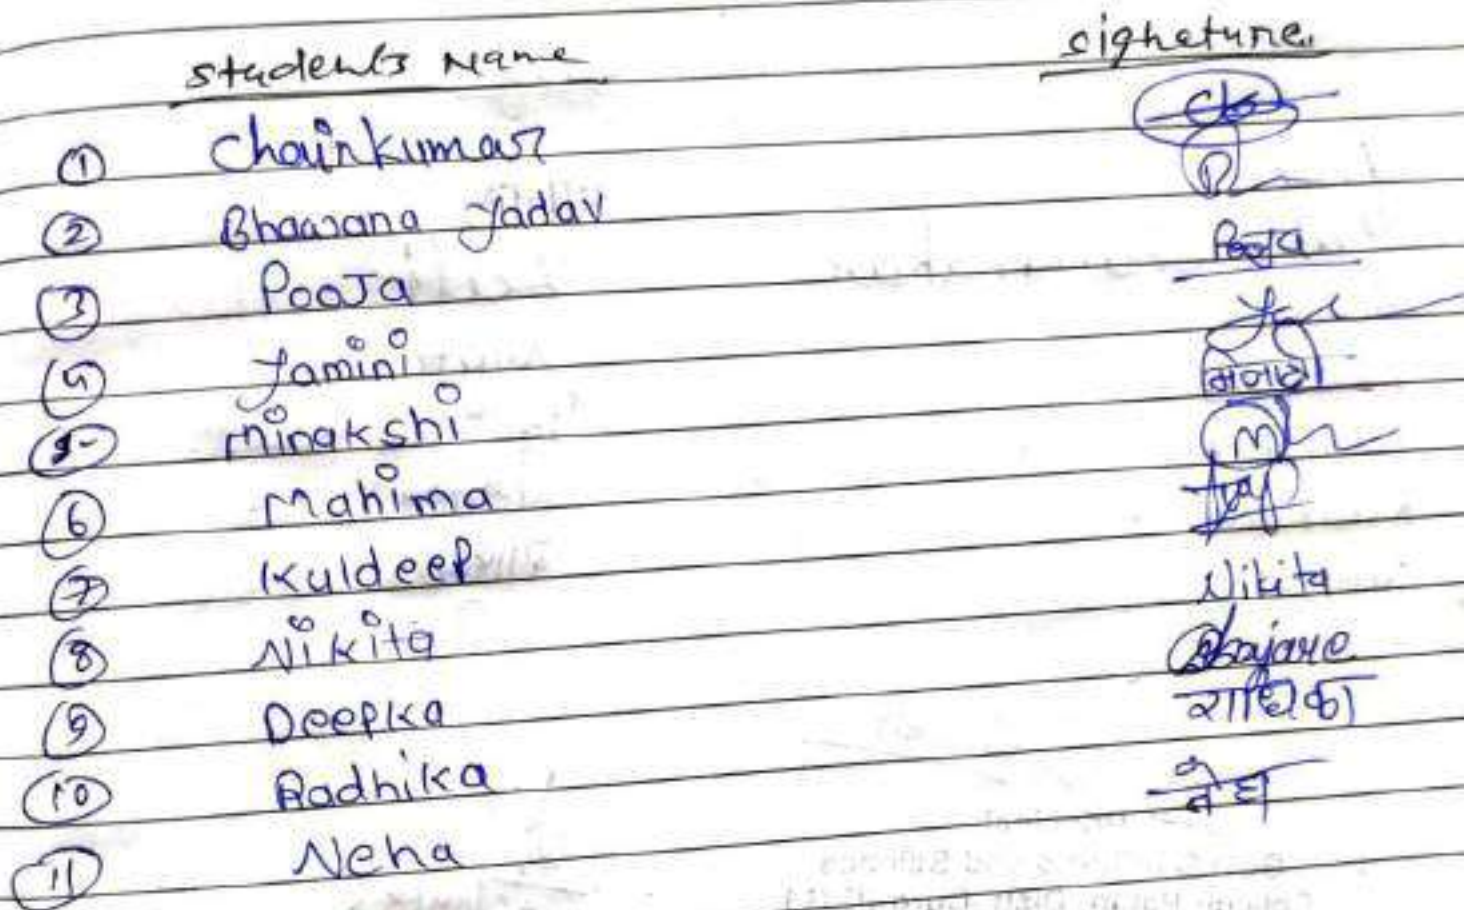 students Name signeture.
① Chainkumar
② Bhawana Yadav
③ PooJa Pooja
④ Yamini
⑤ Minakshi
⑥ Mahima
⑦ Kuldeep
⑧ Nikita Nikita
⑨ Deepka
⑩ Radhika राधिका
⑪ Neha